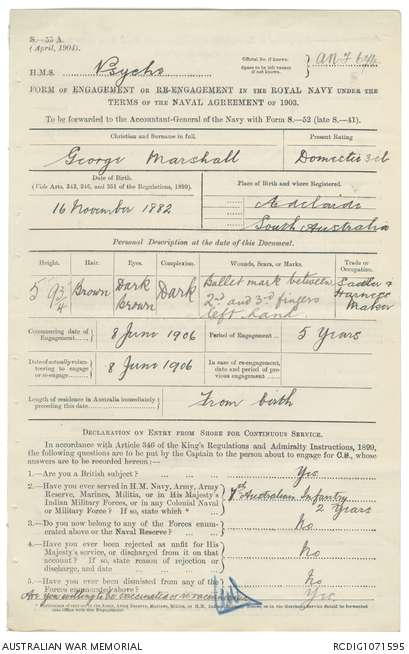 S.—55 A.
(April, 1904).
Official No. if known.
Space to be left vacant if not known.
H.M.S. Psyche
FORM OF ENGAGEMENT OR RE-ENGAGEMENT IN THE ROYAL NAVY UNDER THE
TERMS OF THE NAVAL AGREEMENT OF 1903.
To be forwarded to the Accountant-General of the Navy with Form S.—52 (late S.—41).
Christian and Surname in full.
Present Rating
George Marshall
Domestic 3 cl
Date of Birth.
(Vide Arts. 343, 346, and 351 of the Regulations, 1899).
Place of Birth and where Registered.
16 November 1882
Adelaide
South Australia
Personal Description at the date of this Document.
Height.
Hair.
Eyes.
Complexion.
Wounds, Scars, or Marks.
Trade or Occupation.
5 9 3/4
Brown
Dark Brown
Dark
Bullet mark between
2nd and 3rd fingers
left hand
Sadler &
Harness
Maker
Commencing date of Engagement
8 June 1906
Period of Engagement
5 Years
Date of actually volunteering to engage or re-engage
8 June 1906
In case of re-engagement, date and period of previous engagement
Length of residence in Australia immediately preceding this date
From birth
DECLARATION ON ENTRY FROM SHORE FOR CONTINUOUS SERVICE.
In accordance with Article 346 of the King's Regulations and Admiralty Instructions, 1899,
the following questions are to be put by the Captain to the person about to engage for C.S., whose
answers are to be recorded herein:—
1.—Are you a British subject?
Yes
2.—Have you ever served in H.M. Navy, Army, Army
Reserve, Marines, Militia, or in His Majesty's
Indian Military Forces, or in any Colonial Naval
or Military Force? If so, state which *
Australian Infantry
2 Years
3.—Do you now belong to any of the Forces enumerated
above or the Naval Reserve?
No
4.—Have you ever been rejected as unfit for His
Majesty's service, or discharged from it on that
account? If so, state reason of rejection or
discharge, and date
No
5.—Have you ever been dismissed from any of the
Forces enumerated above?
No
Are you willing to be vaccinated or re-vaccinated
Yes
AUSTRALIAN WAR MEMORIAL
RCDIG1071595